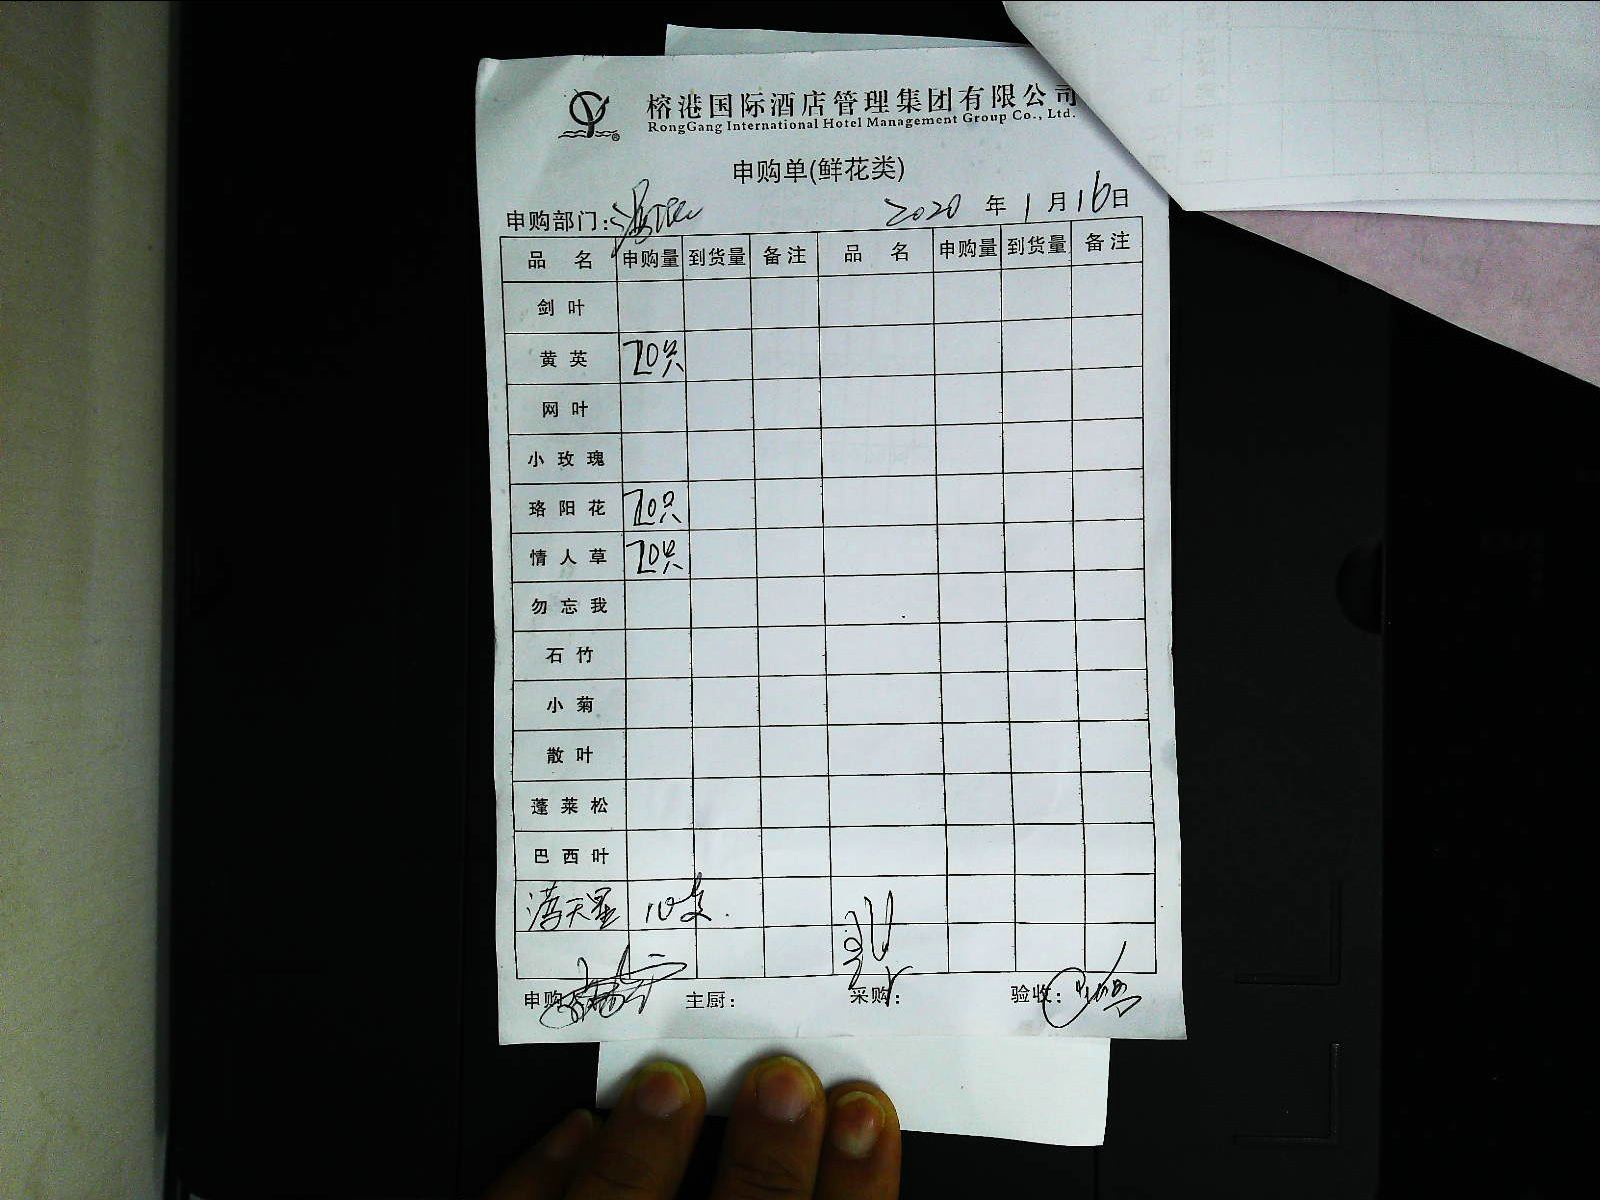 榕港国际酒店管理集团有限公司
RongGang International Hotel Management Group Co., Ltd.
申购单(鲜花类)
申购部门: 2020 年 1 月 16 日
品 名 申购量 到货量 备注 品 名 申购量 到货量 备注
剑叶
黄英 20只
网叶
小玫瑰
珞阳花 20只
情人草 20只
勿忘我
石竹
小菊
散叶
蓬莱松
巴西叶
满天星 10支.
申购 主厨: 采购: 验收: